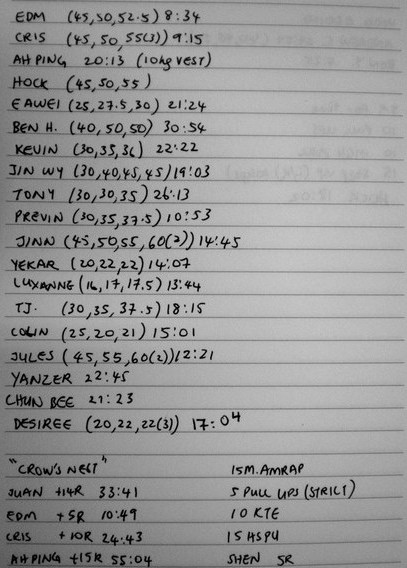 EDM (45,50,52.5) 8:34
CRIS (45,50,55(3)) 9:15
AH PING 20:13 (10kg VEST)
HOCK (45,50,55)
EAWEI (25,27.5,30) 21:24
BEN H. (40,50,50) 30:54
KEVIN (30,35,36) 22:22
JIN WY (30,40,45,45) 19:03
TONY (30,30,35) 26:13
PREVIN (30,35,37.5) 10:53
JINN (45,50,55,60(2)) 14:45
YEKAR (20,22,22) 14:07
LUXANNE (16,17,17.5) 13:44
TJ. (30,35,37.5) 18:15
COLIN (25,20,21) 15:01
JULES (45,55,60(2)) 12:21
YANZER 22:45
CHUN BEE 21:23
DESIREE (20,22,22(3)) 17:04
"CROW'S NEST" 15M.AMRAP
JUAN +14R 33:41 5 PULL UPS (STRICT)
EDM +5R 10:49 10 KTE
CRIS +10R 24:43 15 HSPU
AH PING +15R 55:04 SHEN 5R